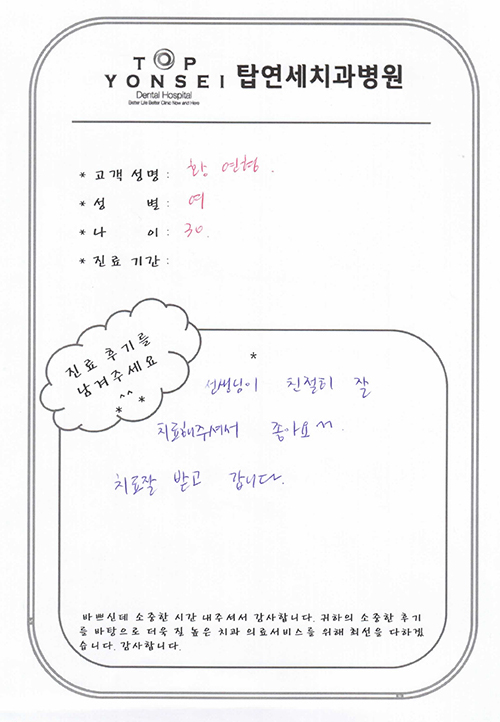 TOP
YONSEI 탑연세치과병원
Dental Hospital
Better Life Better Clinic Now and Here
* 고객 성명 : 황 연형.
* 성 별 : 여
* 나 이 : 30.
* 진료 기간 :
진료 후기를
남겨주세요
^^
* *
*
선생님이 친절히 잘
치료해주셔서 좋아요^^.
치료잘 받고 갑니다.
바쁘신데 소중한 시간 내주셔서 감사합니다. 귀하의 소중한 후기
를 바탕으로 더욱 질 높은 치과 의료서비스를 위해 최선을 다하겠
습니다. 감사합니다.